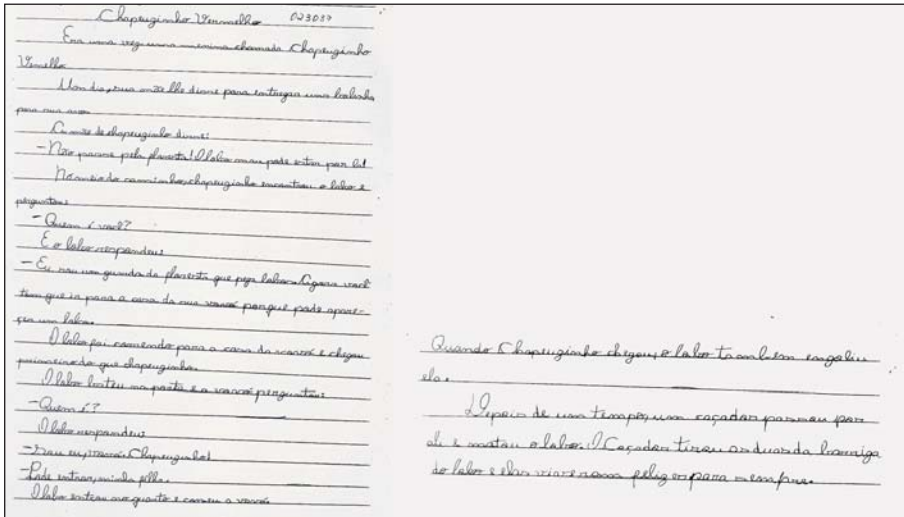 Chapeuzinho Vermelho 023037
Era uma vez uma menina chamada Chapeuzinho
Vemelho.
Um dia, sua mãe lhe disse para entregar uma
para sua avó.
A mãe de chapeuzinho disse:
- Não passe pela floresta! O lobo mau pode estar por lá!
No meio do caminho, chapeuzinho encontrou o lobo e
perguntou:
- Quem é você?
E o lobo respondeu:
- Eu sou um guarda da floresta que pega lobos. Agora você
tem que ir para a casa da sua vovó porque pode apare-
çer um lobo.
O lobo foi correndo para a casa da vovó e chegou
primeiro do que chapeuzinho.
O lobo bateu na porta e a vovó perguntou:
- Quem é?
O lobo respondeu:
- Sou eu, vovó, Chapeuzinho!
- Pode entrar, minha filha.
O lobo entrou no quarto e comeu a vovó.
Quando Chapeuzinho chegou, o lobo tambem engoliu
ela.
Depois de um tempo, um caçador passou por
ali e matou o lobo. O Caçador tirou as duas da barriga
do lobo e elas viveram felizes para sempre.